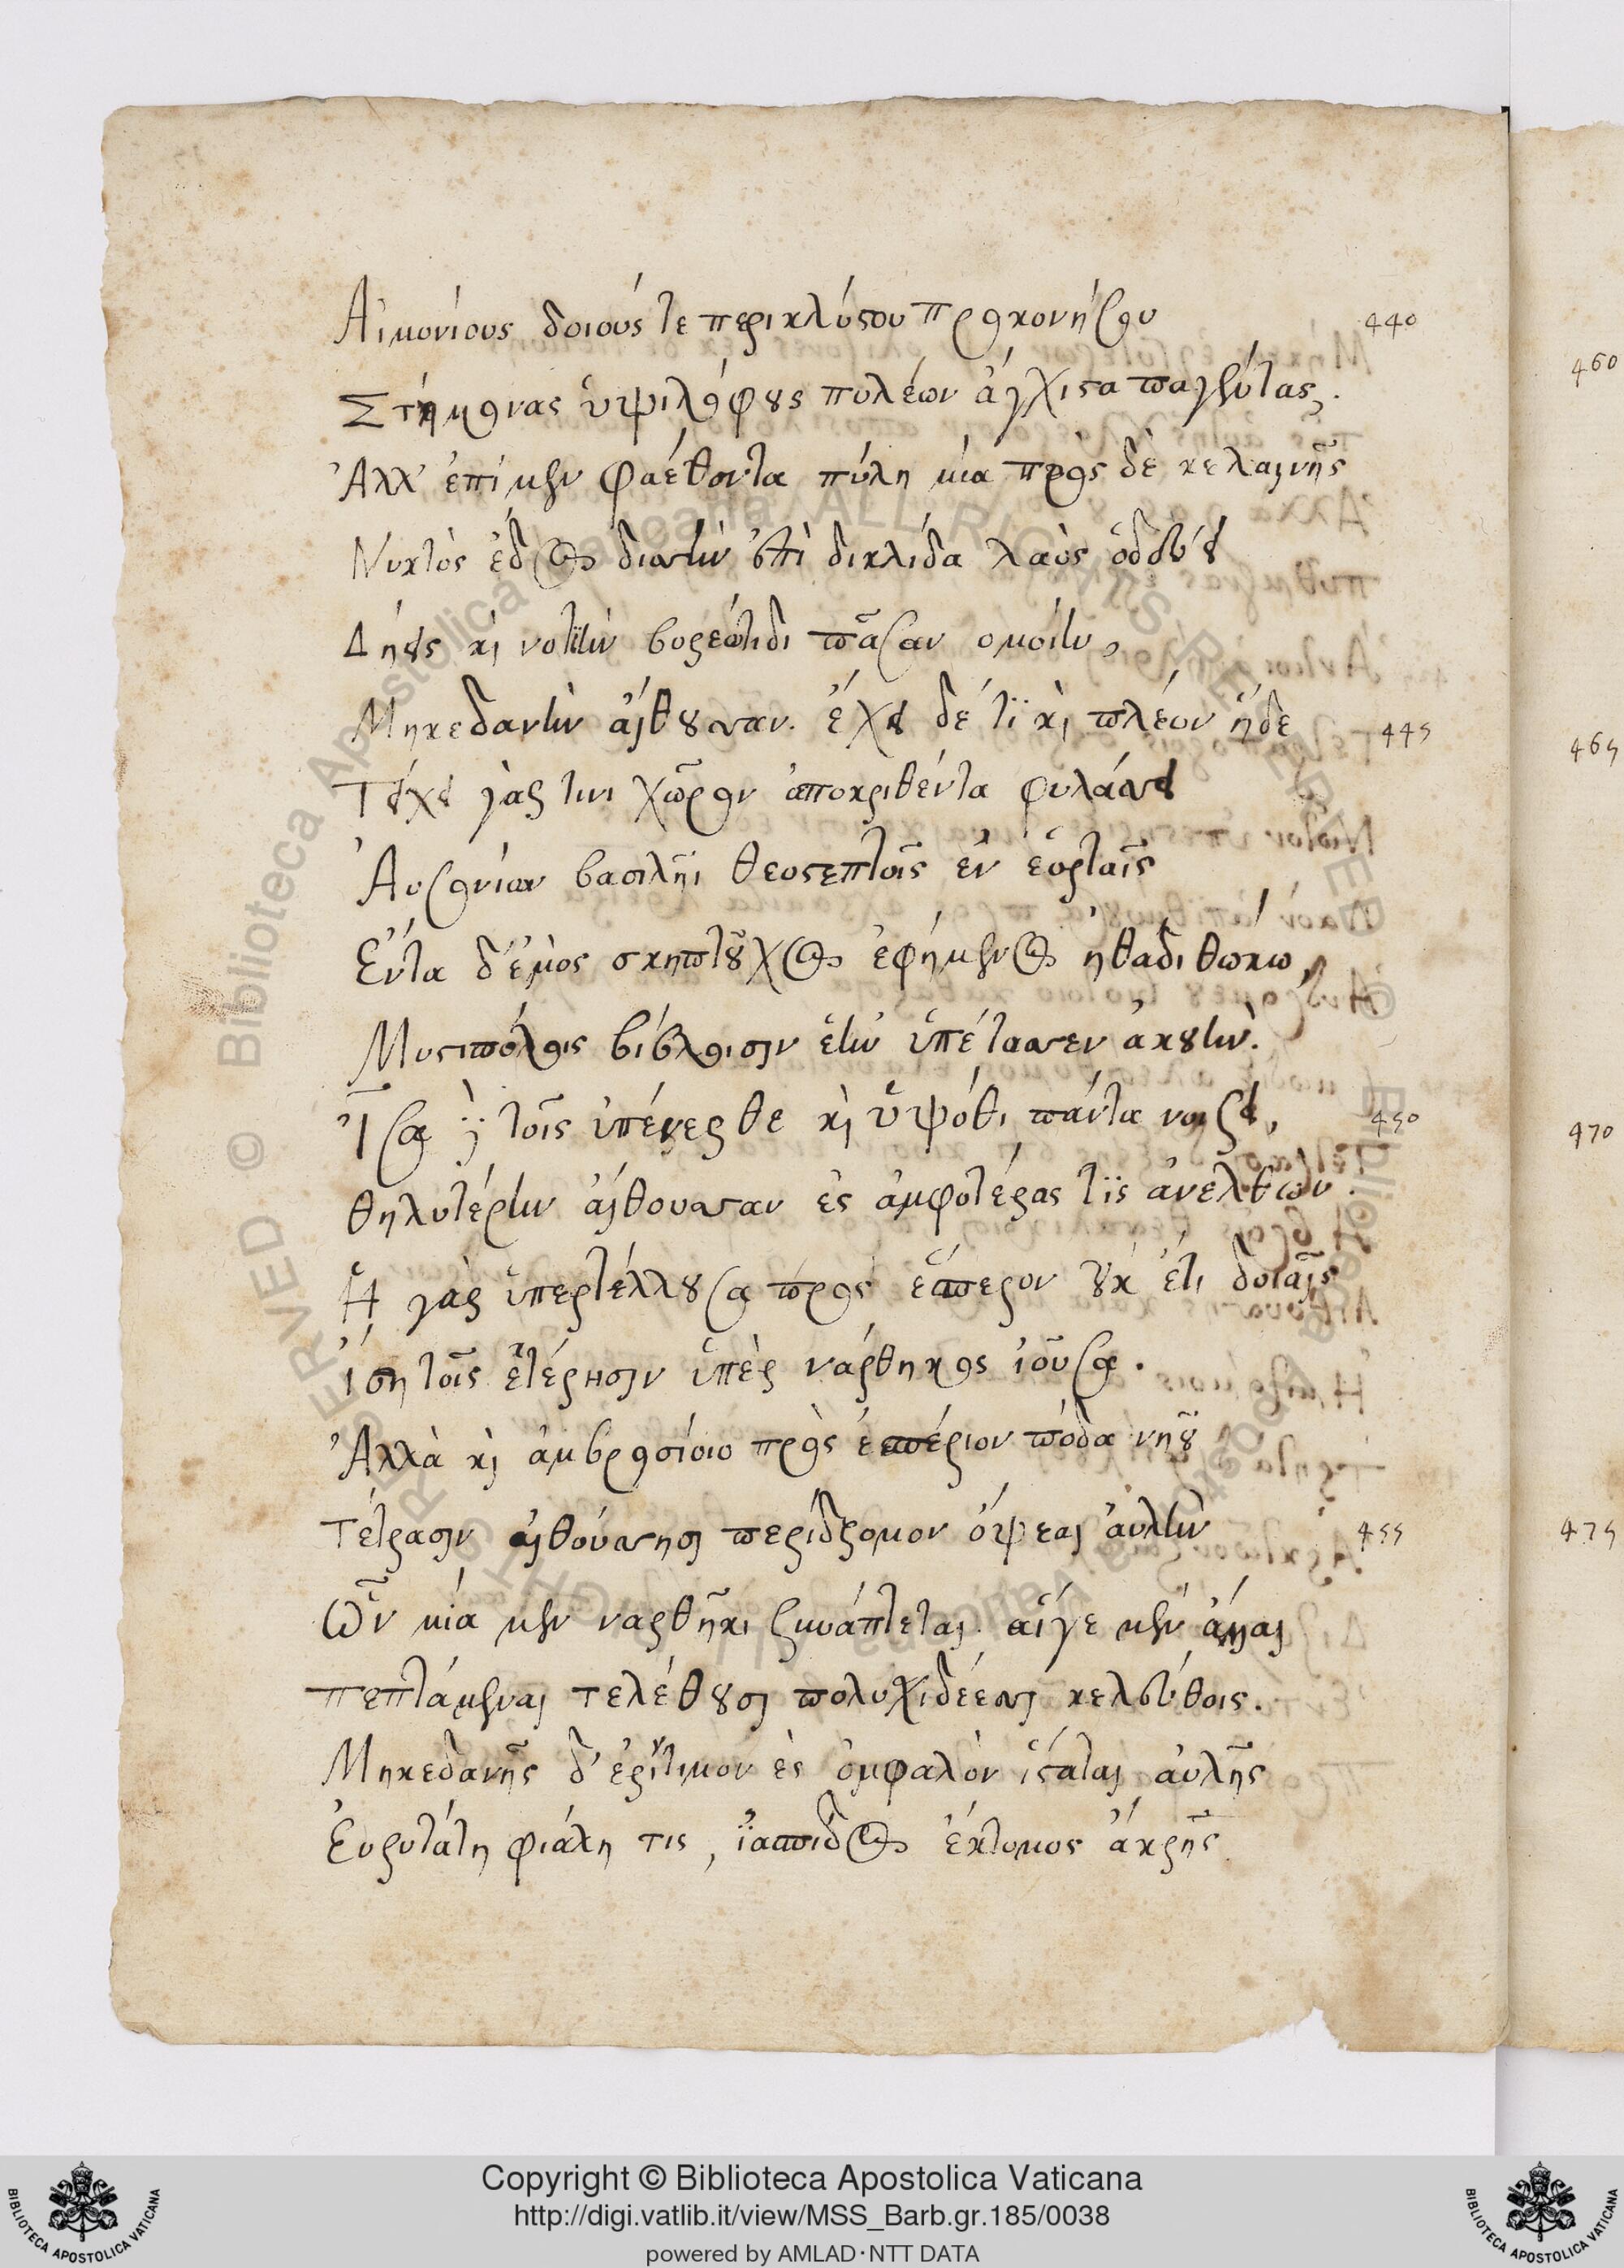 Αἱμονίους δοιούς τε περικλύστου Προκονήσου 440
Στήμονας ὑψιλόφους πυλέων ἄγχιστα παγέντας.
Ἀλλ' ἐπὶ μὲν φαέθοντα πύλη μία πρὸς δὲ κελαινῆς
Νυκτὸς ἕδος δισσὴν ἐπὶ δικλίδα λαὸς ὁδεύει
Δήεις καὶ νοτίην βορεώτιδι πᾶσαν ὁμοίην,
Μηκεδανὴν αἴθουσαν. ἔχει δέ τι καὶ πλέον ἥδε 445
Τείχει γάρ τινι χῶρον ἀποκριθέντα φυλάσσει
Αὐσονίων βασιλῆι θεοστέπτοις ἐν ἑορταῖς
Ἔνθα δ' ἐμὸς σκηπτοῦχος ἐφήμενος ἠθάδι θώκῳ,
Μυστιπόλοις βίβλοισιν ἑὴν ὑπέτασσεν ἀκουήν.
Ἶσα δὲ τοῖς ὑπένερθε καὶ ὑψόθι πάντα νοήσει, 450
θηλυτέρην αἴθουσαν ἐς ἀμφοτέρας τις ἀνελθών.
Ἡ γὰρ ὑπερτέλλουσα πρὸς ἕσπερον οὐκ έτι δοιαῖς
Ἴση τοῖς ἑτέρησιν ὑπὲρ νάρθηκος ἰοῦσα.
Ἀλλὰ καὶ ἀμβροσίοιο πρὸς ἑσπέριον πόδα νηοῦ
Τέτρασιν αἰθούσησι περίδρομον ὄψεαι αὐλὴν 455
Ὧν μία μὲν ναρθῆκι συνάπτεται. αἵγε μὲν ἄλλαι
πεπτάμεναι τελέθουσι πολυσχιδέεσσι κελεύθοις.
Μηκεδανῆς δ' ἐρίτιμον ἐς ὀμφαλὸν ἵσταται αὐλῆς
Εὐρυτάτη φιάλη τις, ἰάσπιδος ἔκτομος ἄκρης
460
465
470
475
Copyright © Biblioteca Apostolica Vaticana
http://digi.vatlib.it/view/MSS_Barb.gr.185/0038
powered by AMLAD·NTT DATA